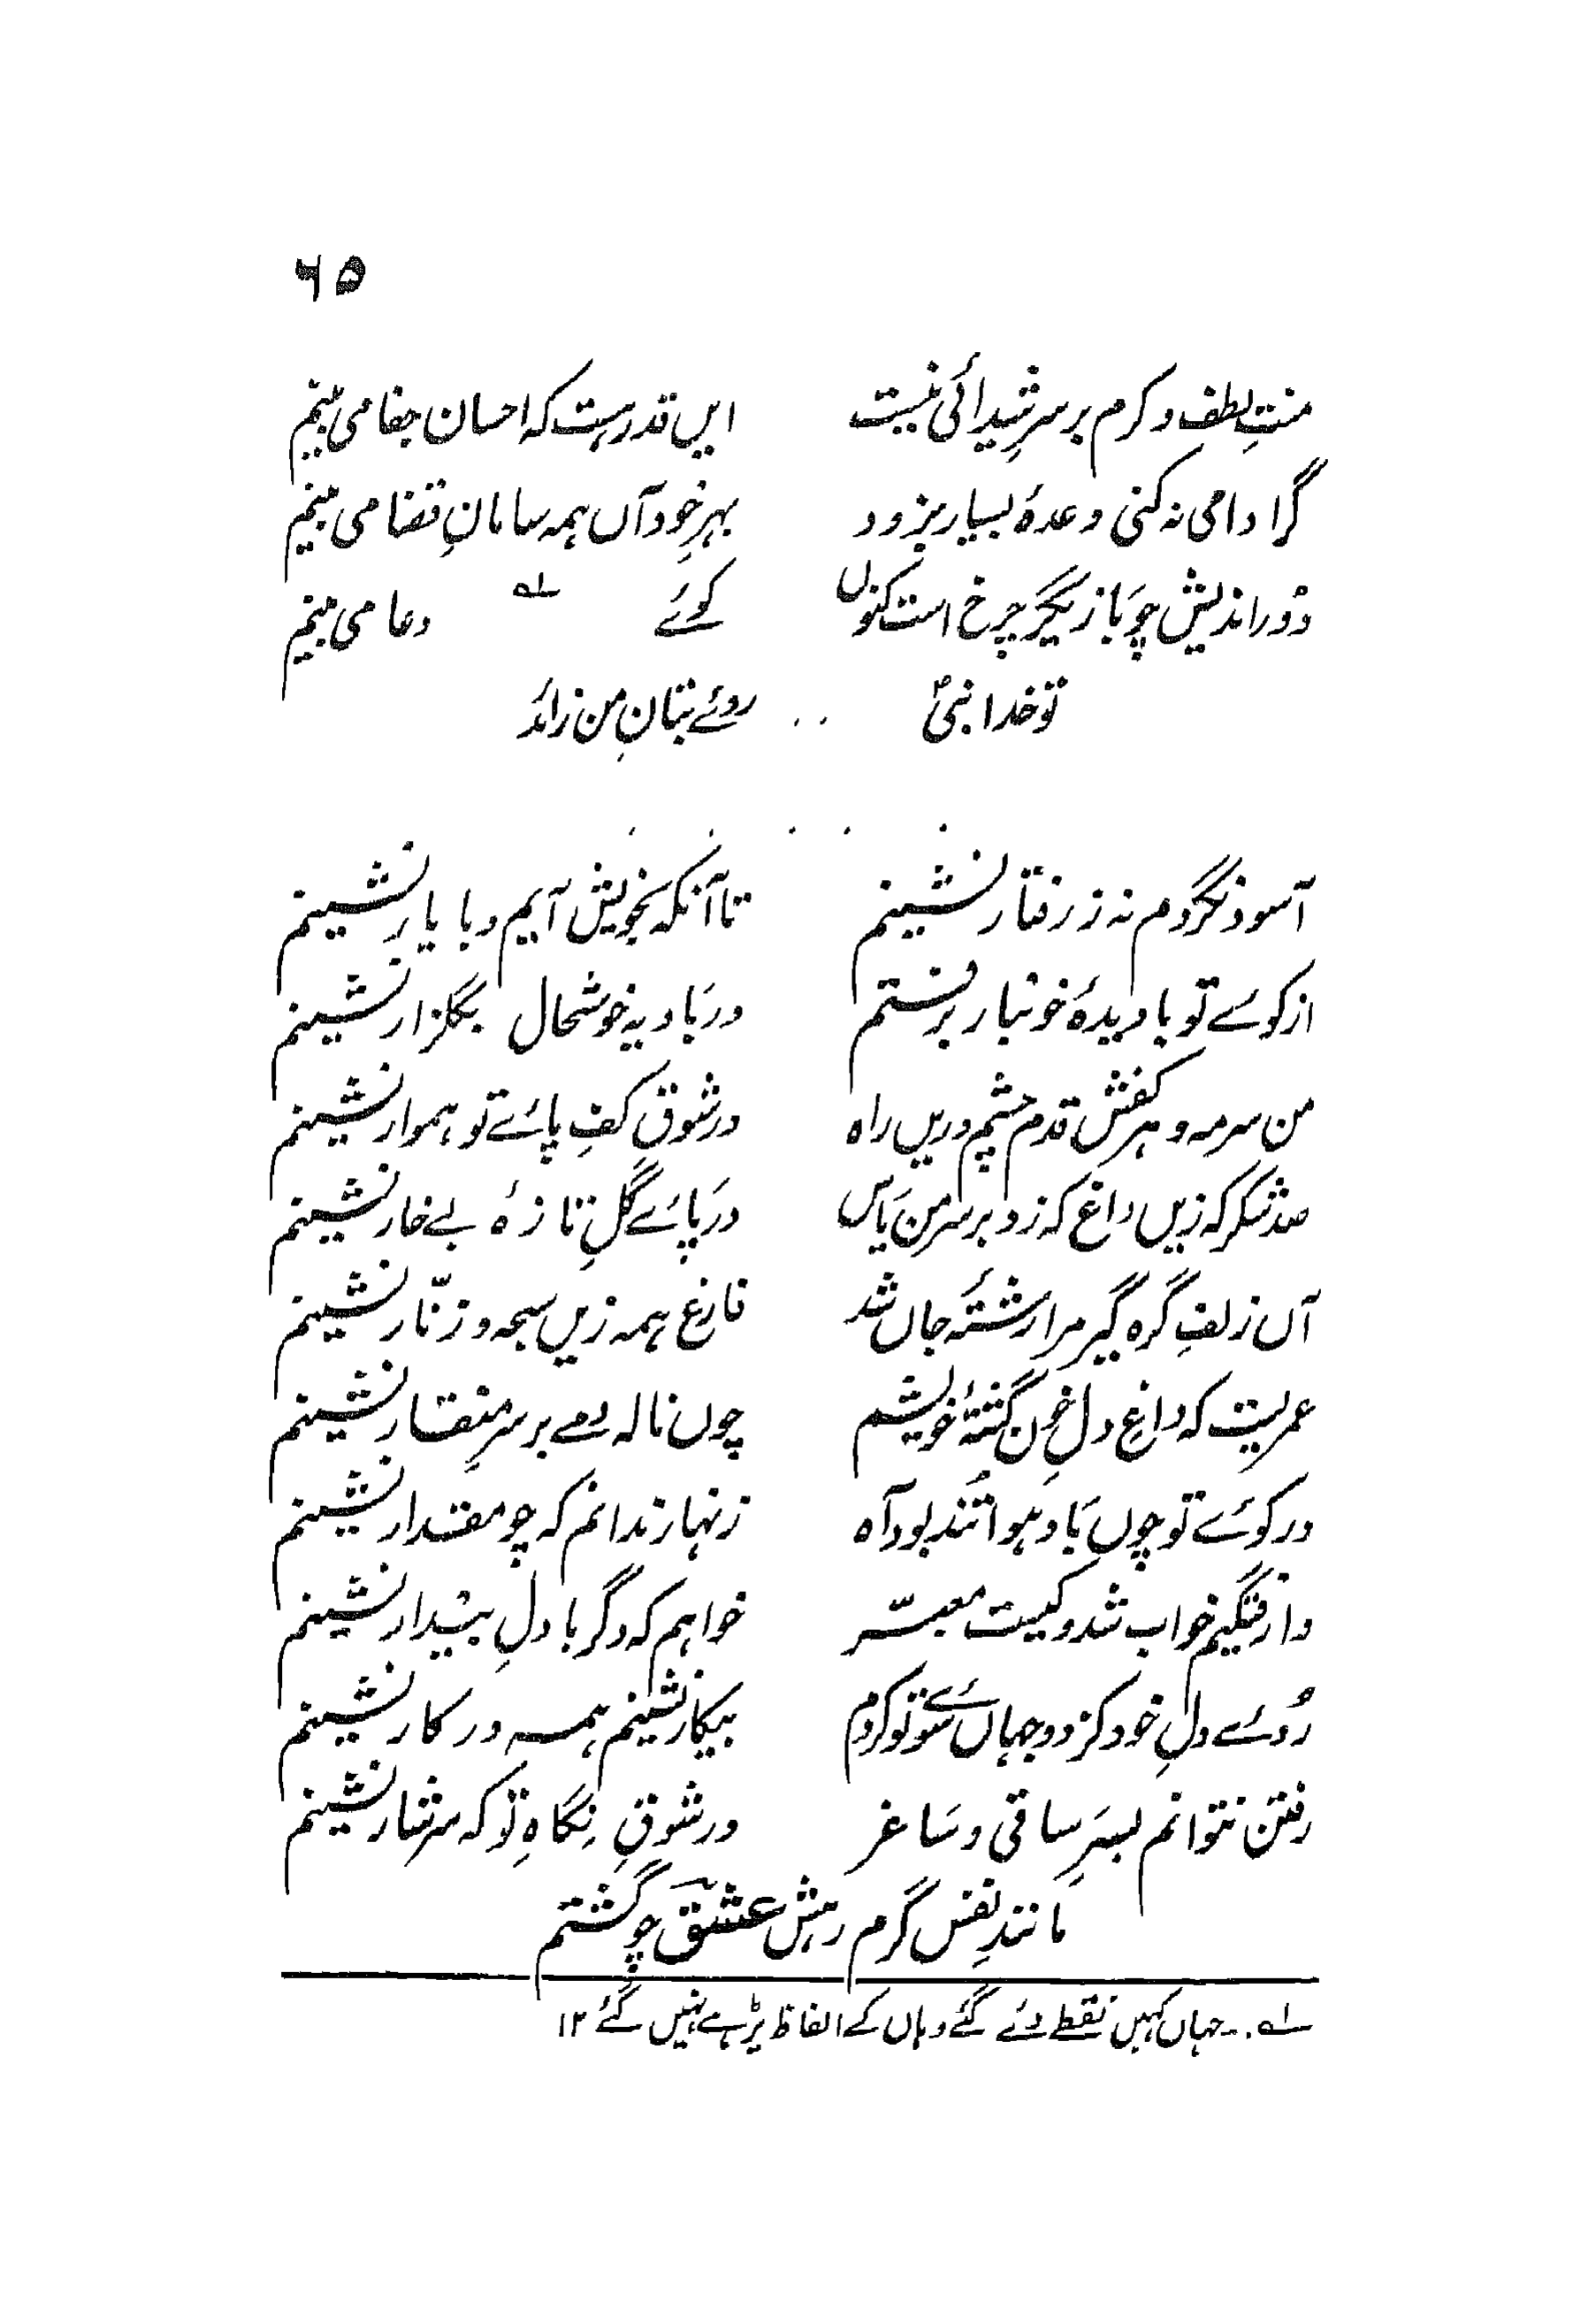 ۶۵
منتِ لطف و کرم بر سرِ شیدائی نیست ایں قدر ہست کہ احسان جفا می بینم
گر ادا می نہ کنی وعدۂ بسیار بزود بہرِ خود آں ہمہ سامانِ قضا می بینم
دُور اندیش چو بازیگرِ چرخ است کنوں کوئے ؎۱ دعا می بینم
تو خدا نبیؐ .. روئے بتانِ من زائد
آسودہ نگردم نہ ز رفتار نشینم تا آنکہ بخویش آیم و با یار نشینم
از کوے تو با دیدۂ خونبار برفستم در بادیہ خوشحال بگلزار نشینم
من سرمہ و ہر کفش قدم چشم دریں راہ در شوقِ کفِ پائے تو ہموار نشینم
صد شکر کہ زیں داغ کہ زد بر سرِ من یاس در پائے گلِ تازۂ بے خار نشینم
آں زلفِ گرہ گیر مرا رشتۂ جاں شد فارغ ہمہ زیں سبحہ و زنّار نشینم
عمریست کہ داغِ دلِ خوں گشتۂ خویشم چوں نالہ دمے بر سرِ منقار نشینم
در کوئے تو چوں باد ہوا تُند بود آہ زنہار ندانم کہ چو مقدار نشینم
وارفتگیم خواب شد و کیست معبّر خواہم کہ دگر با دلِ بیدار نشینم
رُوے دلِ خود کز دو جہاں سوئے تو کردم بیکار نشینم ہمہ در کار نشینم
رفتن نتوانم بسرِ ساقی و ساغر در شوقِ نگاہِ تو کہ سرشار نشینم
مانندِ نفس گرم رہش عشقؔ چو گشتم
؎۱ .. ۔ جہاں کہیں نقطے دئے گئے وہاں کے الفاظ پڑھے نہیں گئے ۱۲